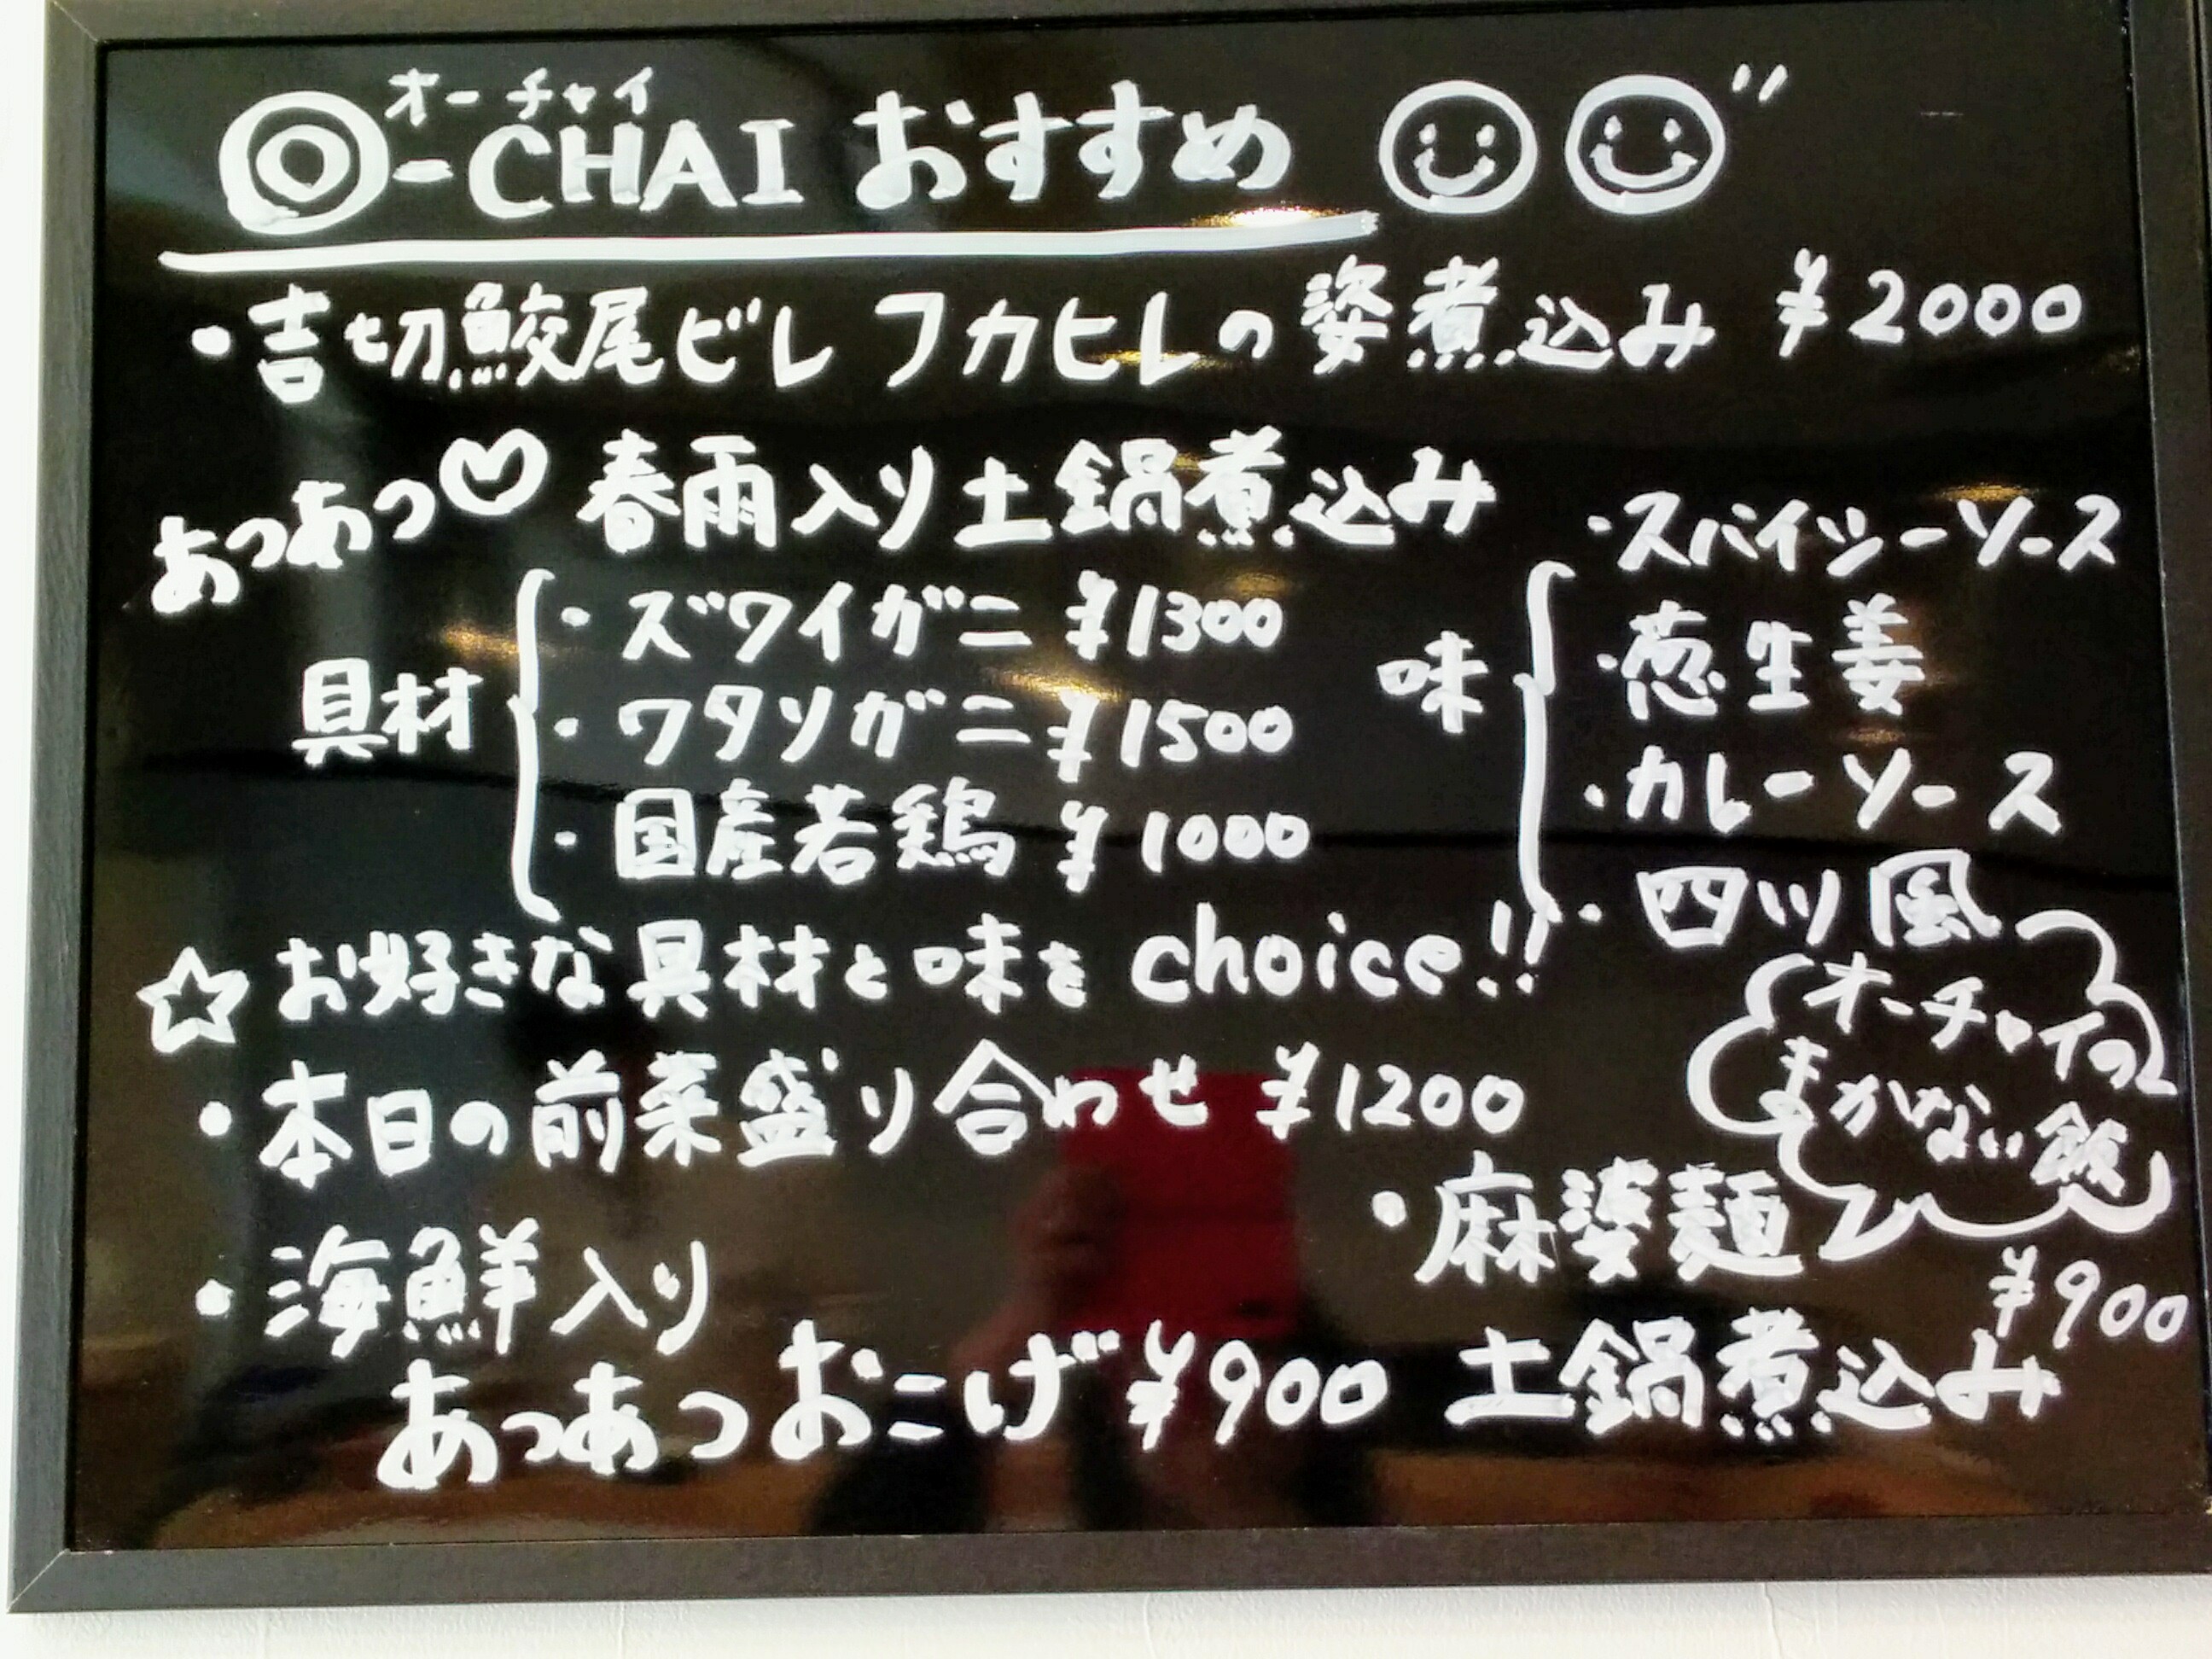 オーチャイ
O-CHAI おすすめ
・吉切鮫尾ビレ フカヒレの姿煮込み ¥2000
あつあつ♡ 春雨入り土鍋煮込み
具材
・ズワイガニ ¥1300
・ワタリガニ ¥1500
・国産若鶏 ¥1000
味
・スパイシーソース
・葱生姜
・カレーソース
・四川風
☆お好きな具材と味を choice!!
・本日の前菜盛り合わせ ¥1200
・海鮮入り
あつあつおこげ ¥900
オーチャイの
まかない飯
・麻婆麺
¥900
土鍋煮込み